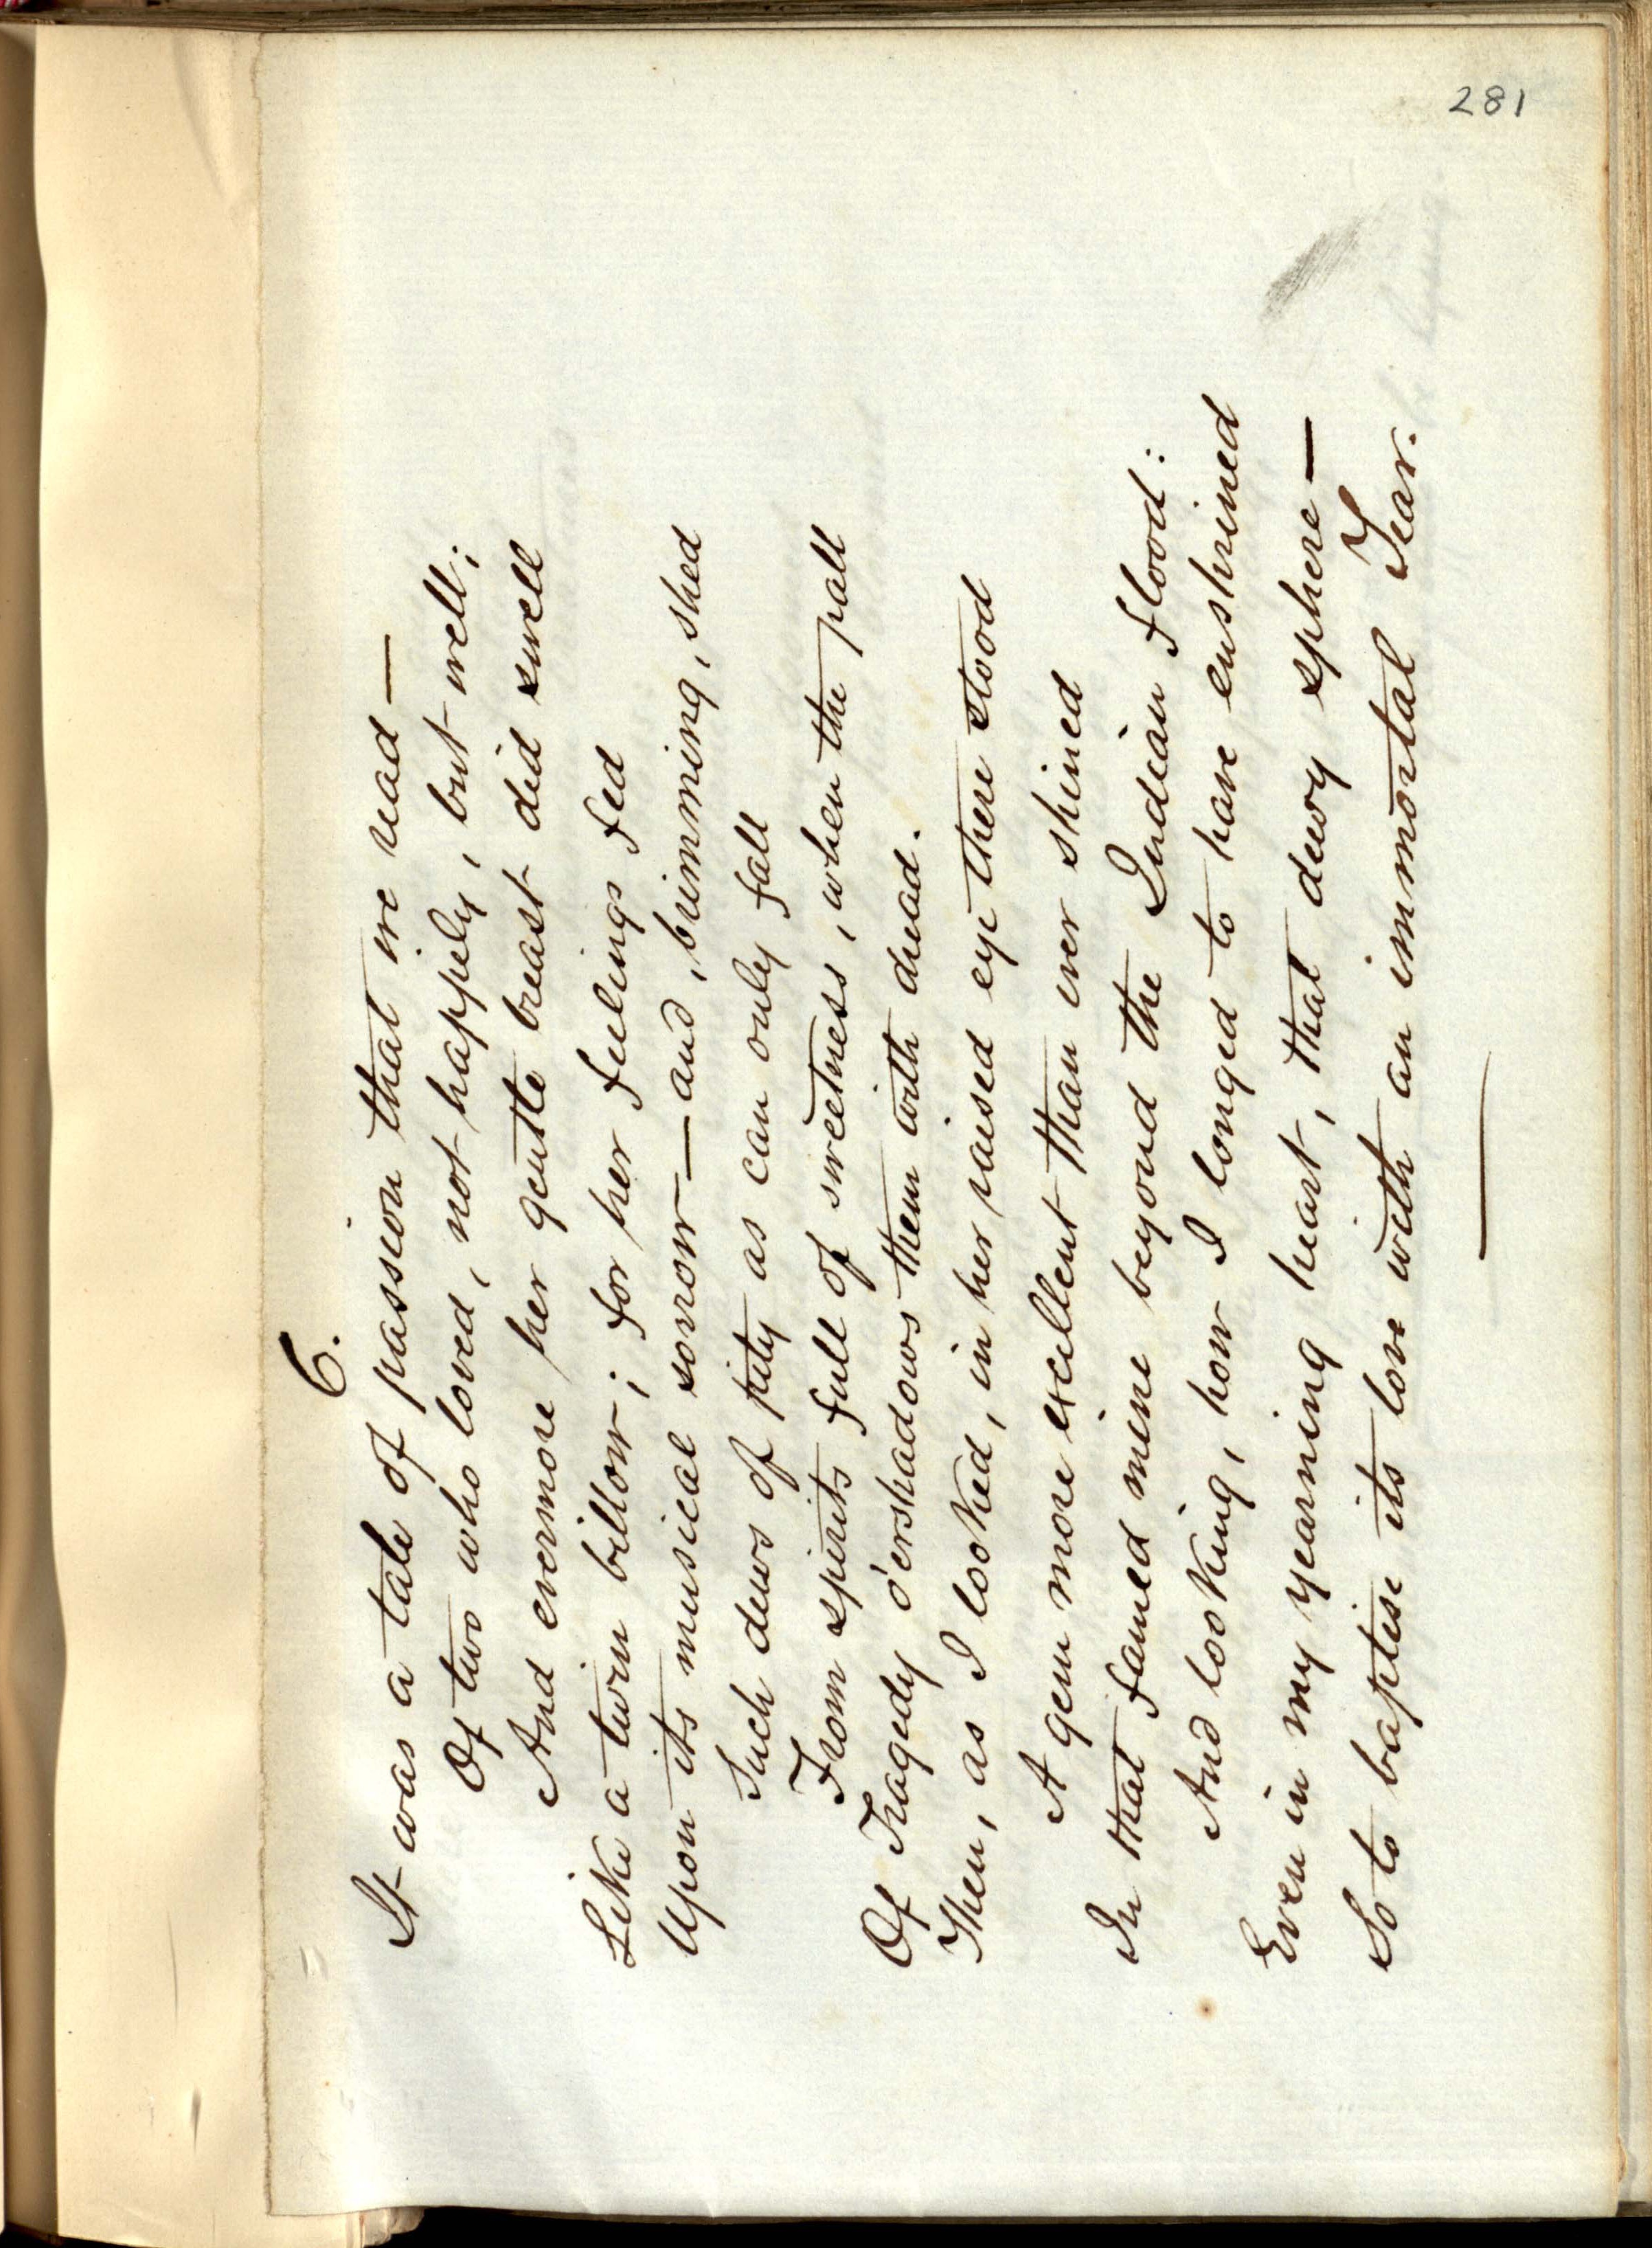 281
6.
It was a tale of passion that we read —
Of two who loved, not happily, but well;
And evermore her gentle breast did swell
Like a twin billow; for her feelings fed
Upon its musical sorrow — and, brimming, shed
Such dews of pity as can only fall
From spirits full of sweetness, when the pall
Of Tragedy o'ershadows them with dread.
Then, as I looked, in her raised eye there stood
A gem more excellent than ever shined
In that famed mine beyond the Indian flood:
And looking, how I longed to have enshrined
Even in my yearning heart, that dewy sphere —
So to baptise its love with an immortal Tear.